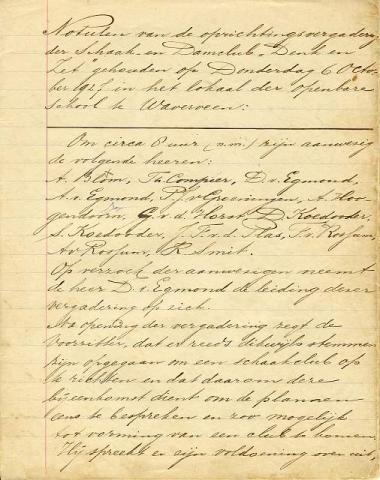 Notulen van de oprichtingsvergadering
der Schaak- en Damclub "Denk en
Zet" gehouden op Donderdag 6 Octo-
ber 1927 in het lokaal der openbare
school te Waverveen:
Om circa 8 uur (n.m.) zijn aanwezig
de volgende heeren:
A. Blom, Th. Compier, D. v. Egmond,
A. v. Egmond, P. J. v. Groeningen, A. Hoo-
gendoorn, G. v. d. Horst, D. Koedooder,
S. Koedooder, J. F. v. d. Plas, F. v. Rossum,
A. v. Rossum, R. Smit.
Op verzoek der aanwezigen neemt
de heer D. v. Egmond de leiding dezer
vergadering op zich.
Na opening der vergadering zegt de
Voorzitter, dat er reeds stemmen
zijn opgegaan om een schaakclub op
te richten en dat daarom deze
bijeenkomst dient om de plannen
eens te bespreken en zoo mogelijk
tot vorming van een club te komen.
Hij spreekt er zijn voldoening over uit,